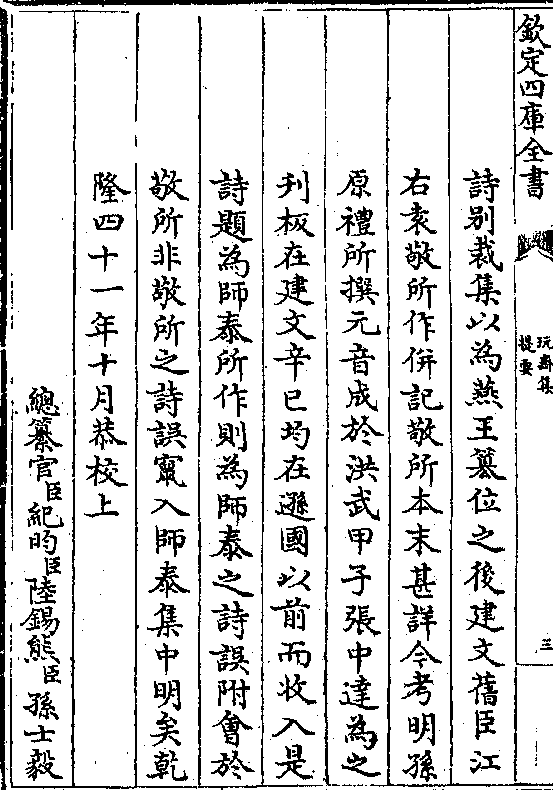 欽定四庫全書
玩齋集
提要
三
詩别裁集以為燕王簒位之後建文舊臣江
右袁敬所作併記敬所本末甚詳今考明孫
原禮所撰元音成於洪武甲子張中達為之
刋板在建文辛巳均在遜國以前而收入是
詩題為師泰所作則為師泰之詩誤附會於
敬所非敬所之詩誤竄入師泰集中明矣乾
隆四十一年十月恭校上
總纂官臣紀昀臣陸錫熊臣孫士毅